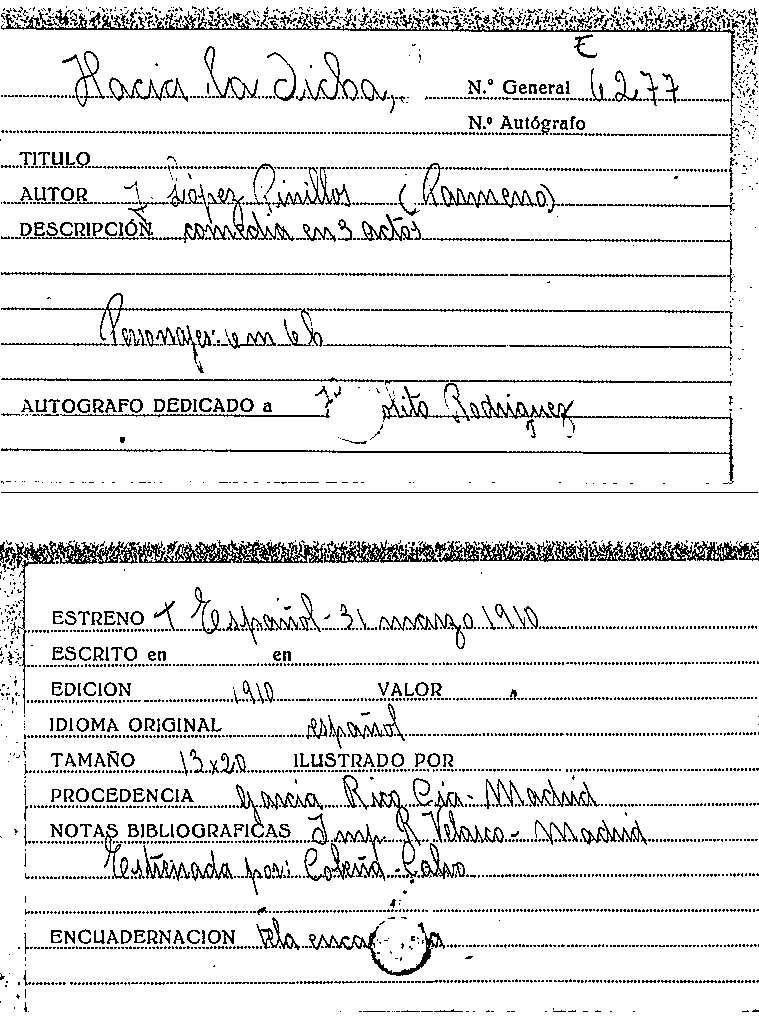 E
Hacia la dicha,
N.º General 6277
N.º Autógrafo
TITULO
AUTOR J. López Pinillos (Parmeno)
DESCRIPCIÓN comedia en 3 actos
Personajes: 6 m 6 h
AUTOGRAFO DEDICADO a Rodriguez
ESTRENO T Español - 31 marzo 1910
ESCRITO en en
EDICION 1910 VALOR
IDIOMA ORIGINAL español
TAMAÑO 13x20 ILUSTRADO POR
PROCEDENCIA Garcia Rico Cia - Madrid
NOTAS BIBLIOGRAFICAS Imp. R Velasco - Madrid
Estrenada por: Cobeña - Calvo
ENCUADERNACION tela